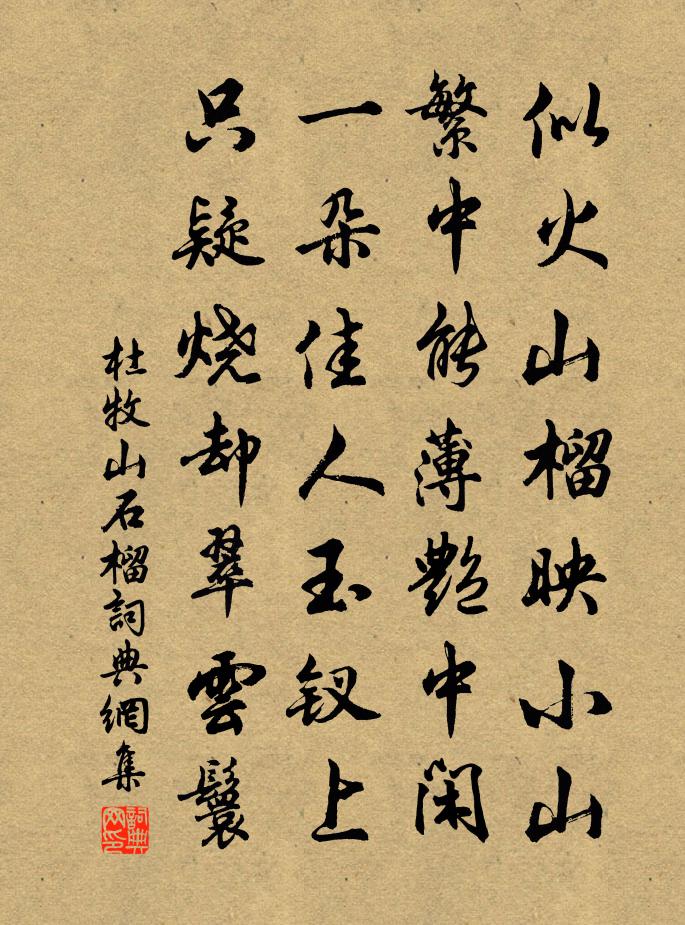 似火山榴映小山
繁中能薄艷中闲
一朵佳人玉钗上
只疑烧却翠雲鬟
杜牧山石榴詞典網集
詞典网印